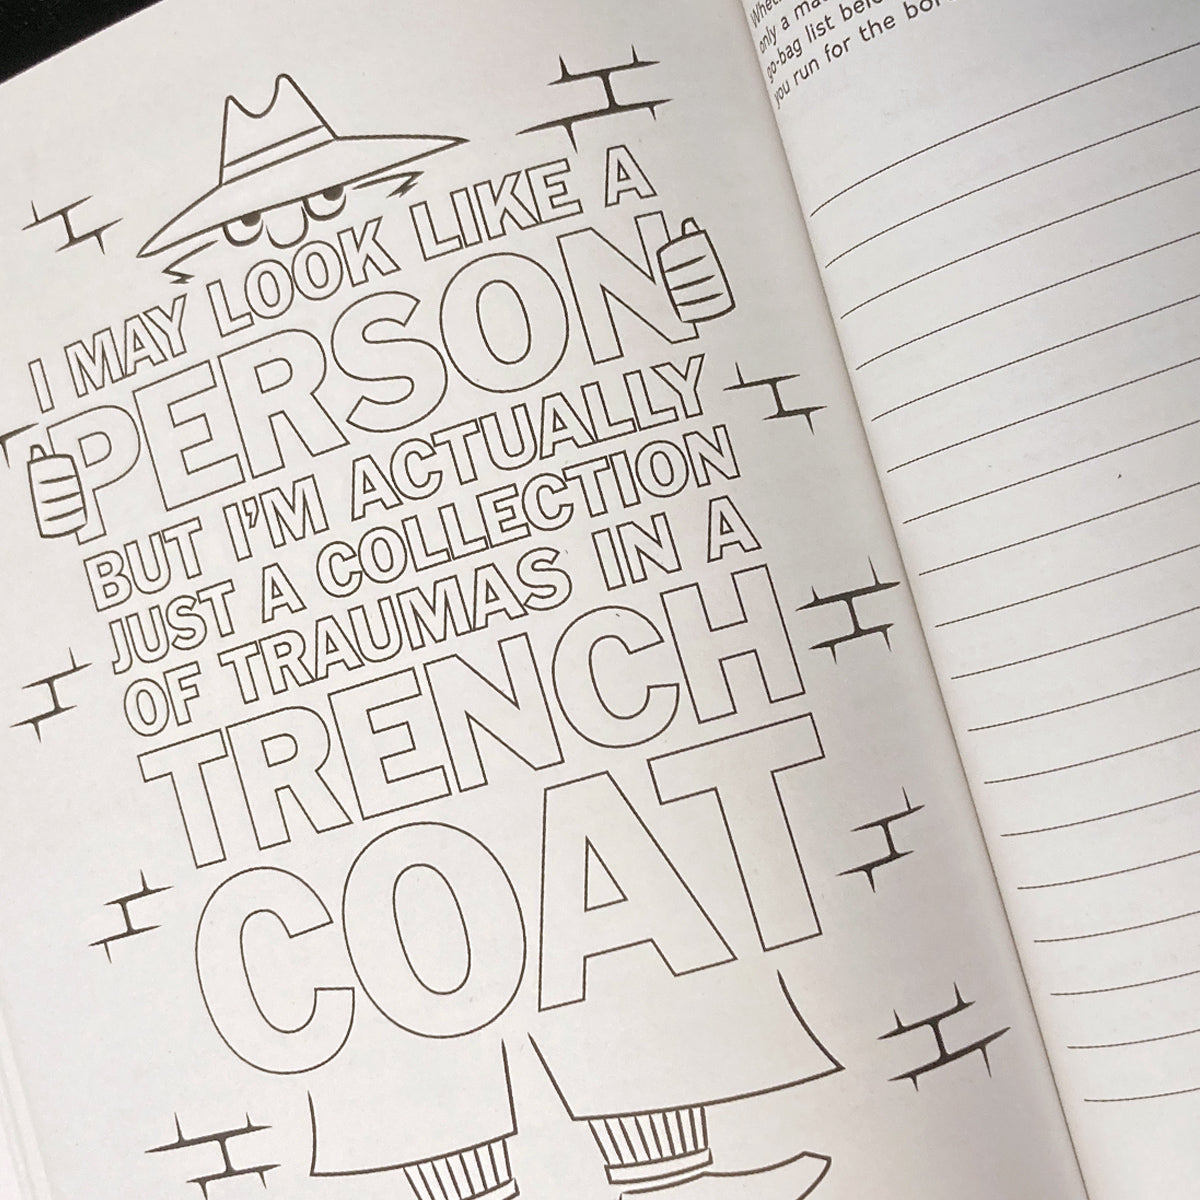 I MAY LOOK LIKE A
PERSON
BUT I'M ACTUALLY
JUST A COLLECTION
OF TRAUMAS IN A
TRENCH
COAT
only a
go-bag list
you run for the